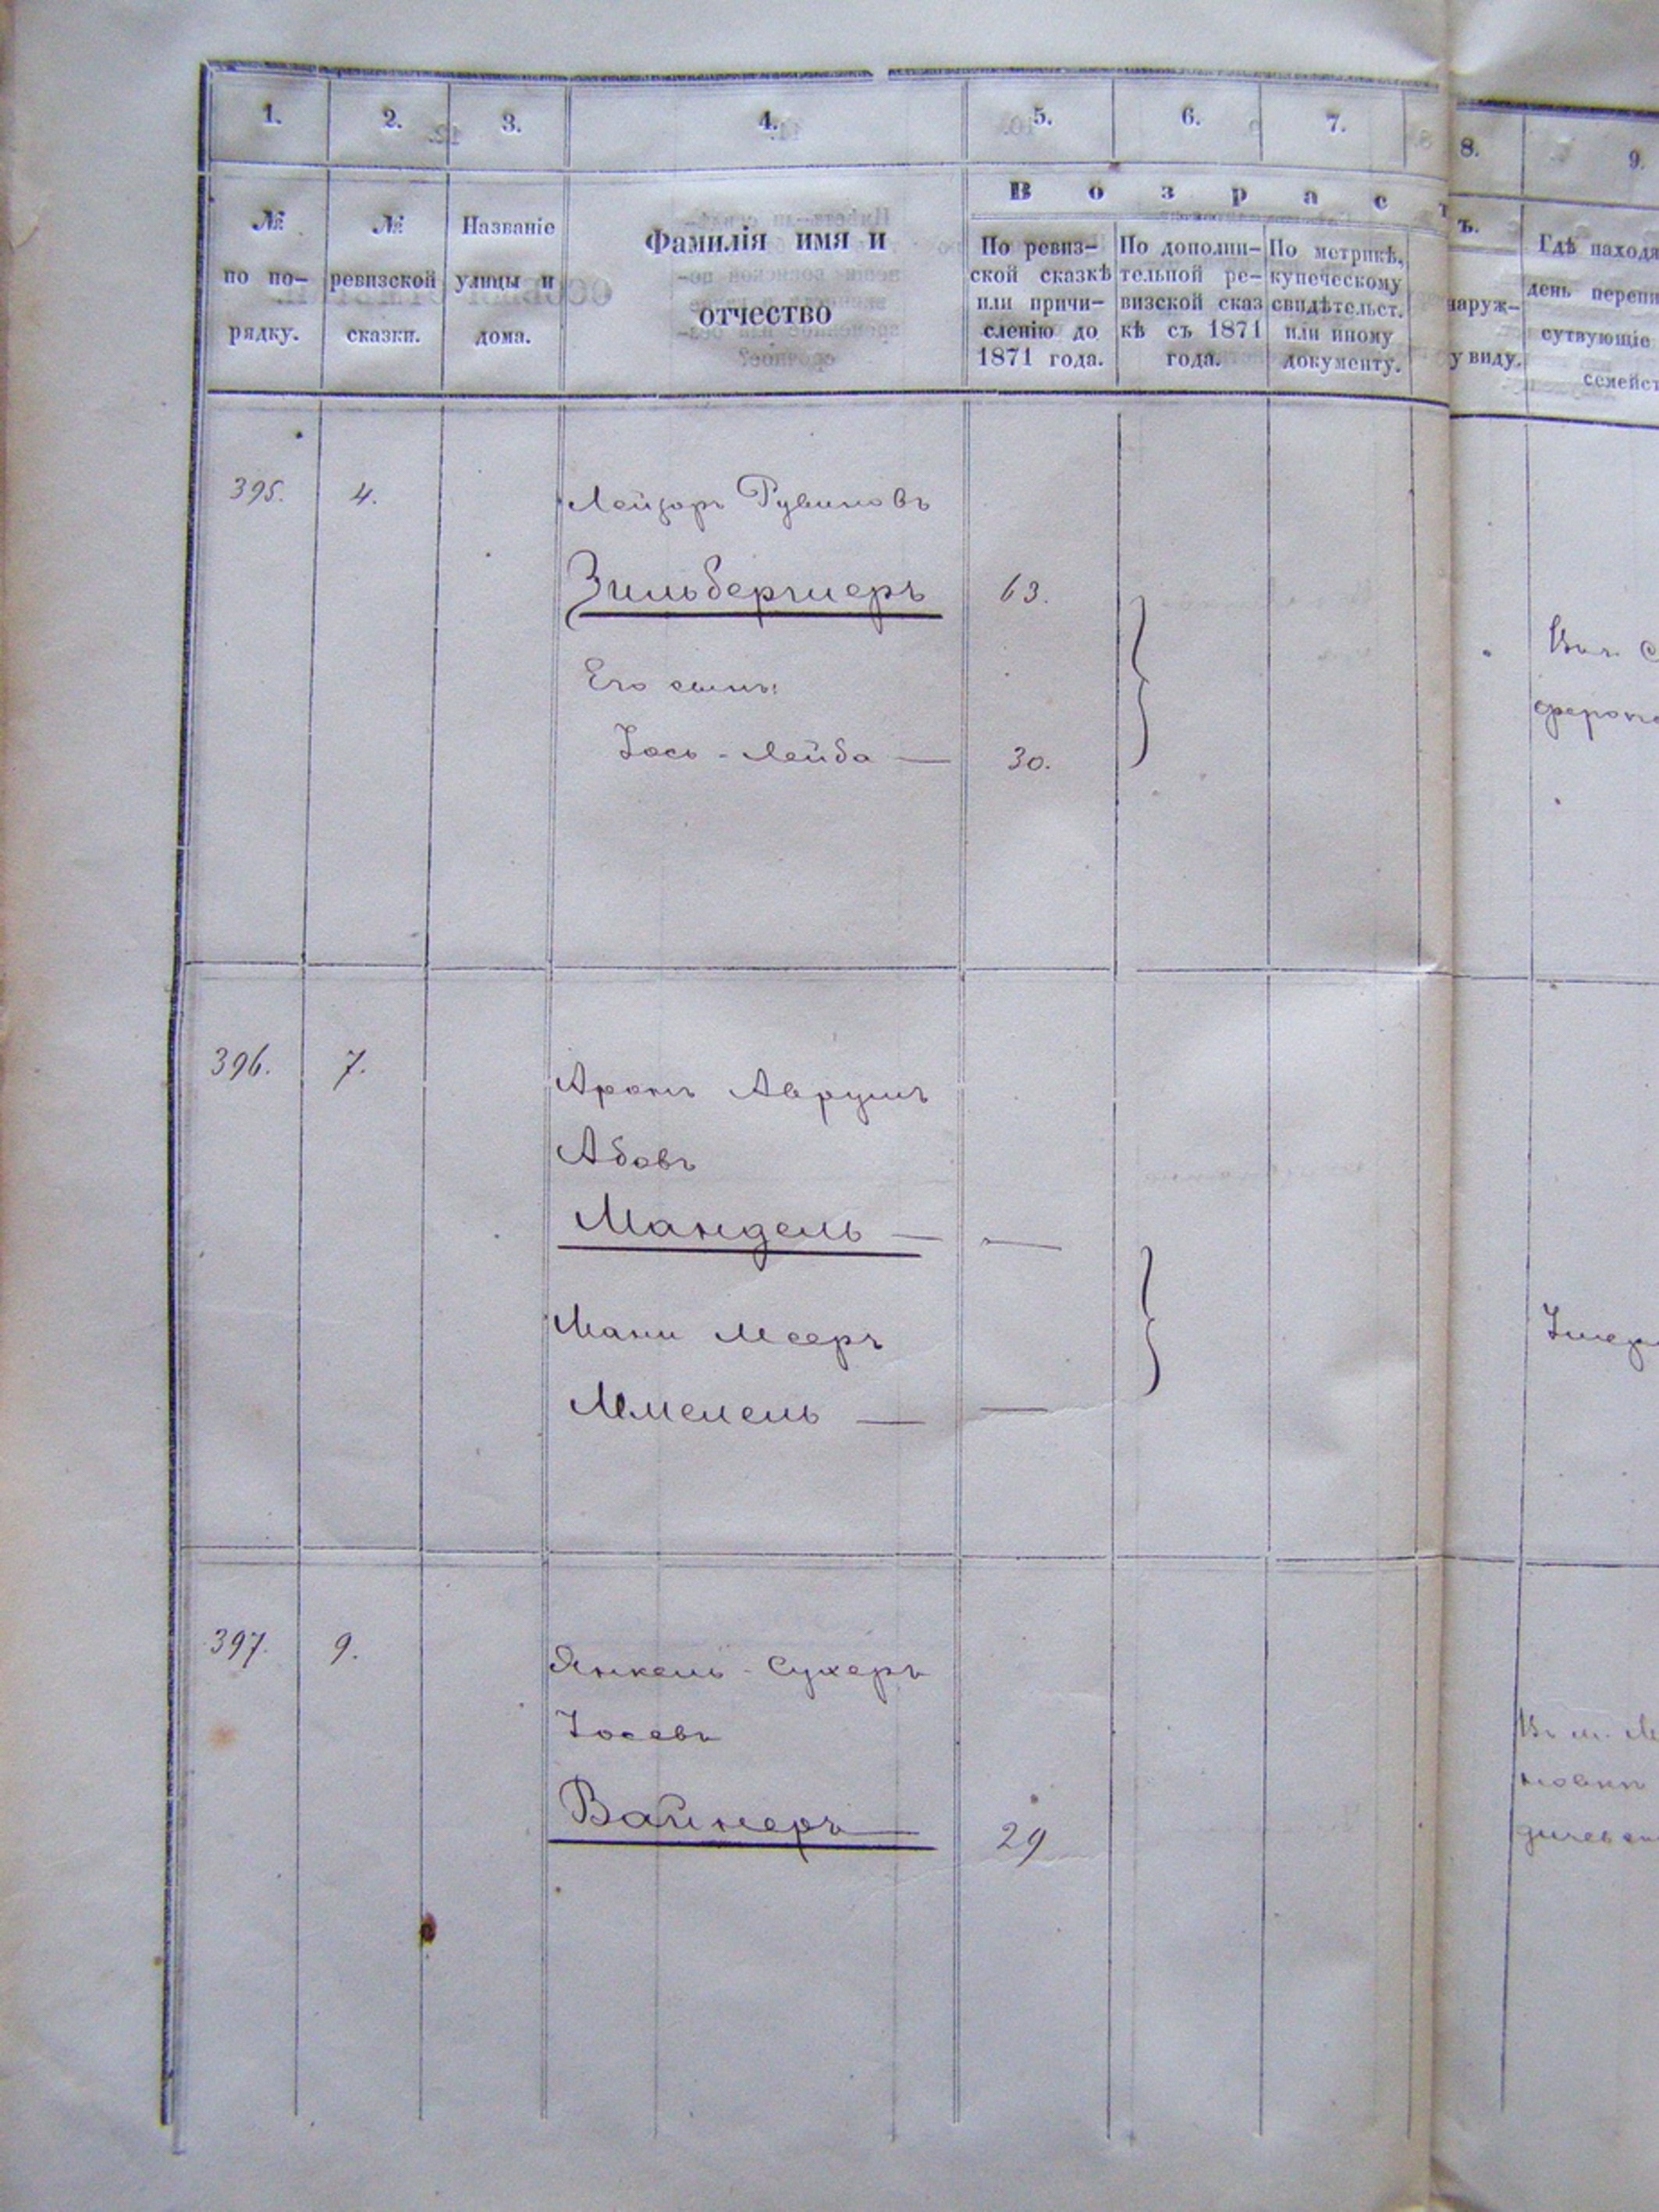 1.
2.
3.
4.
5.
6.
7.
8.
9.
№
по по-
рядку.
№
ревизской
сказки.
Названіе
улицы и
дома.
Фамилія имя и
отчество
В о з р а с т
ъ.
По ревиз-
ской сказкѣ
или причи-
сленію до
1871 года.
По дополни-
тельной ре-
визской сказ
кѣ съ 1871
года.
По метрикѣ,
купеческому
свидѣтельст.
или иному
документу.
наруж-
у виду.
Гдѣ находя
день перепи
сутвующіе
семейст
395.
4.
Лейзоръ Рувиновъ
Зильберглеръ
63.
Его сынъ:
Іось-Лейба —
30.
396.
7.
Аронъ Аврумъ
Абовъ
Мандель — —
Мееръ
397.
9.
Янкель-Сухеръ
Іосевъ
Вайнеръ
29